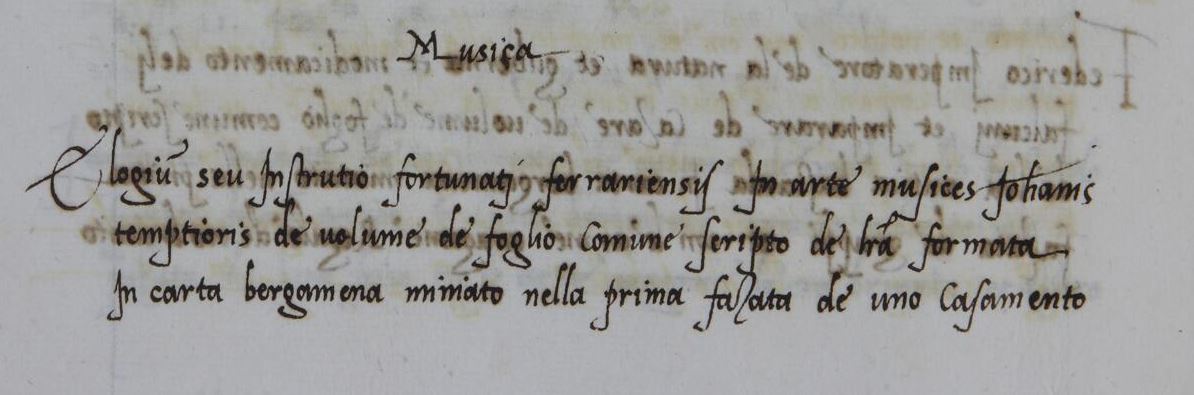 Musica
Elogiū seu Instrutio fortunatj ferrariensis In arte musices Iohanis
temptioris de volume de foglio Comune scripto de lrā formata
In carta bergamena miniato nella prima fazata de uno Casamento